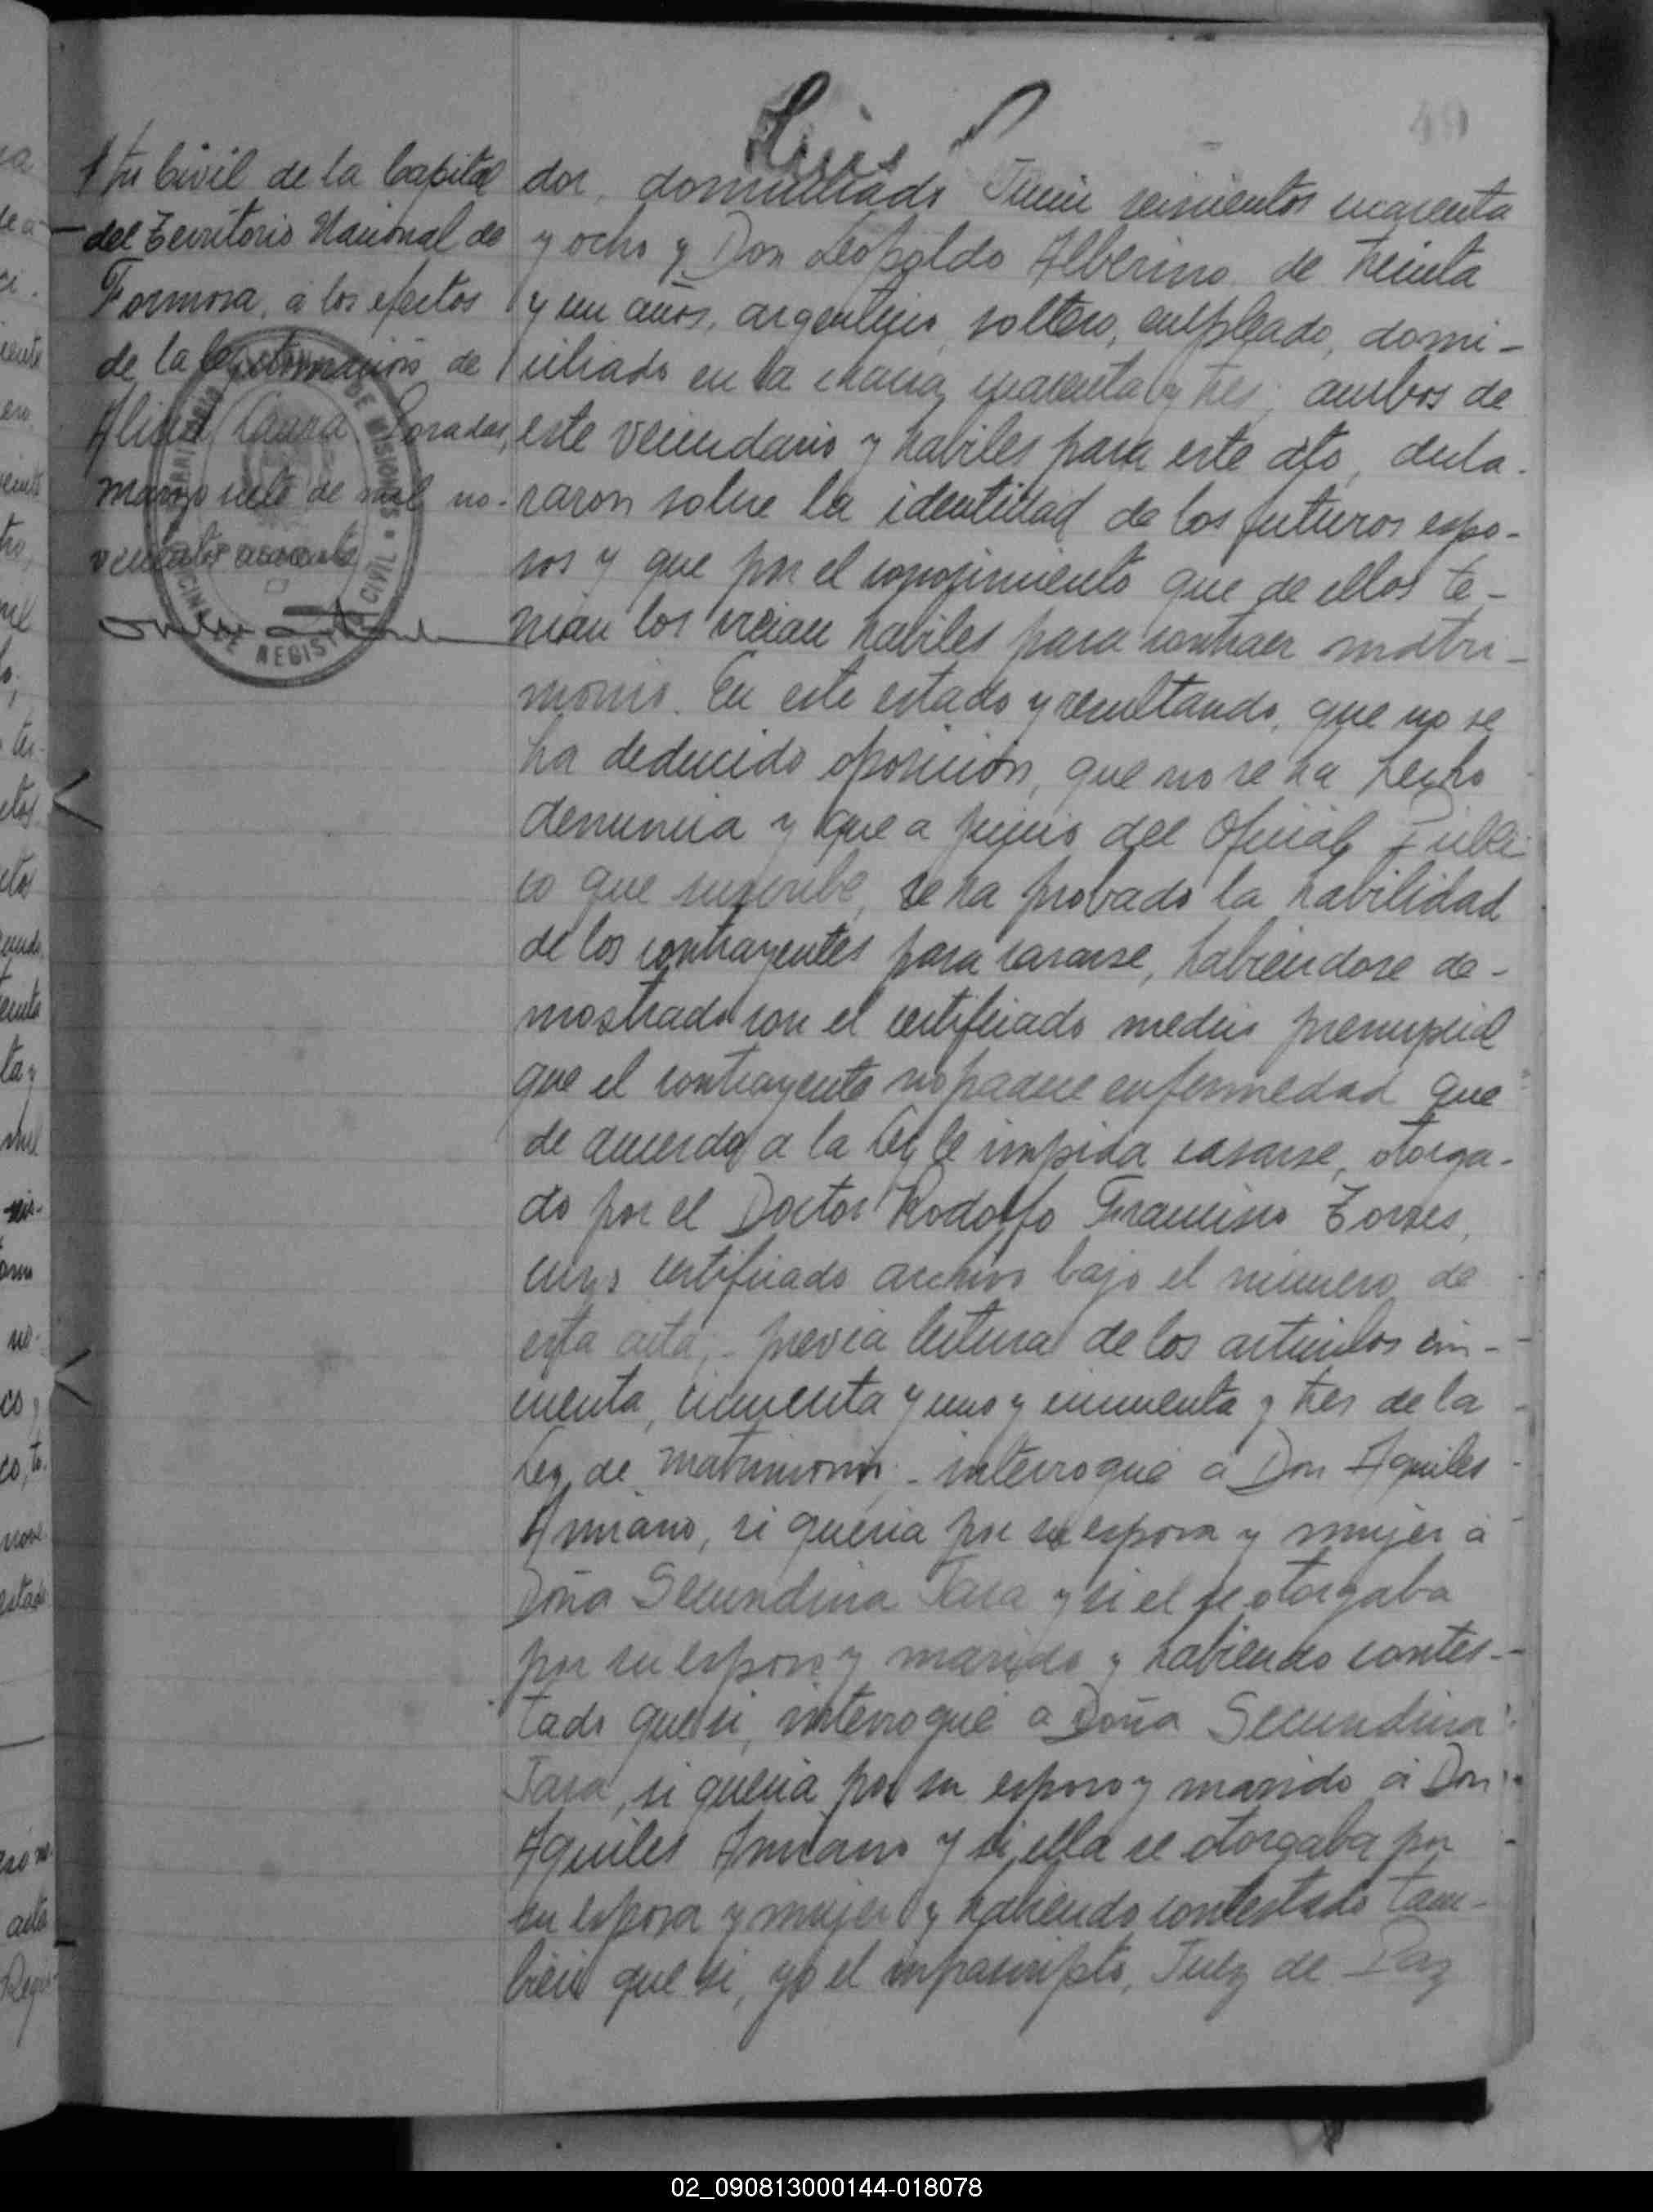 49
tro Civil de la Capital
del Territorio Nacional de
Formosa, á los efectos
de la legitimación de
Alicia Laura. Posadas,
marzo siete de mil no-
vecientos cuarenta
OFICINA DE REGISTRO CIVIL
DE MISIONES
dor, domiciliado Junin seiscientos cuarenta
y ocho y Don Leopoldo Alberino de treinta
y un años, argentino, soltero, empleado, domi-
ciliado en la chacra cuarenta y tres; ambos de
este vecindario y habiles para este acto, decla-
raron sobre la identidad de los futuros espo-
sos y que por el conocimiento que de ellos te-
nian los creian habiles para contraer matri-
monio. En este estado y resultando, que no se
ha deducido oposicion, que no se ha hecho
denuncia y que a juicio del Oficial Públi-
co que suscribe, se ha probado la habilidad
de los contrayentes para casarse, habiendose de-
mostrado con el certificado medico prenupcial
que el contrayente no padece enfermedad que
de acuerdo a la Ley le impida casarse, otorga-
do por el Doctor Rodolfo Francisco Torres,
cuyo certificado archivo bajo el número de
esta acta, - previa lectura de los articulos cin-
cuenta, cincuenta y uno y cincuenta y tres de la
Ley de matrimonio; - interrogué á Don Aquiles
Amiano, si queria por su esposa y mujer á
Doña Secundina Jara y si el se otorgaba
por su esposo y marido y habiendo contes-
tado que si, interrogué a Doña Secundina
Jara, si queria por su esposo y marido á Don
Aquiles Amiano y si ella se otorgaba por
su esposa y mujer y habiendo contestado tam-
bien que si, yo el infrascripto, Juez de Paz
02_090813000144-018078